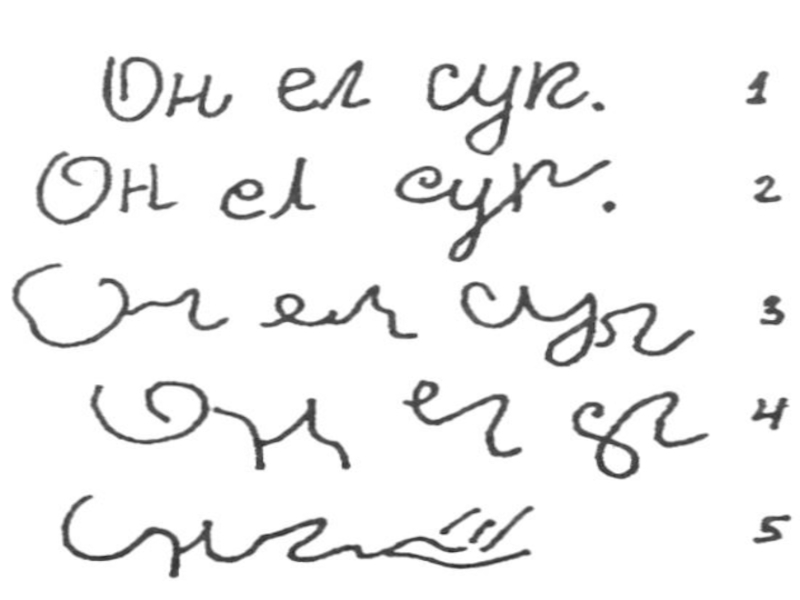 Он ел суп. 1
Он ел суп. 2
Он ел суп 3
Он ел 4
5